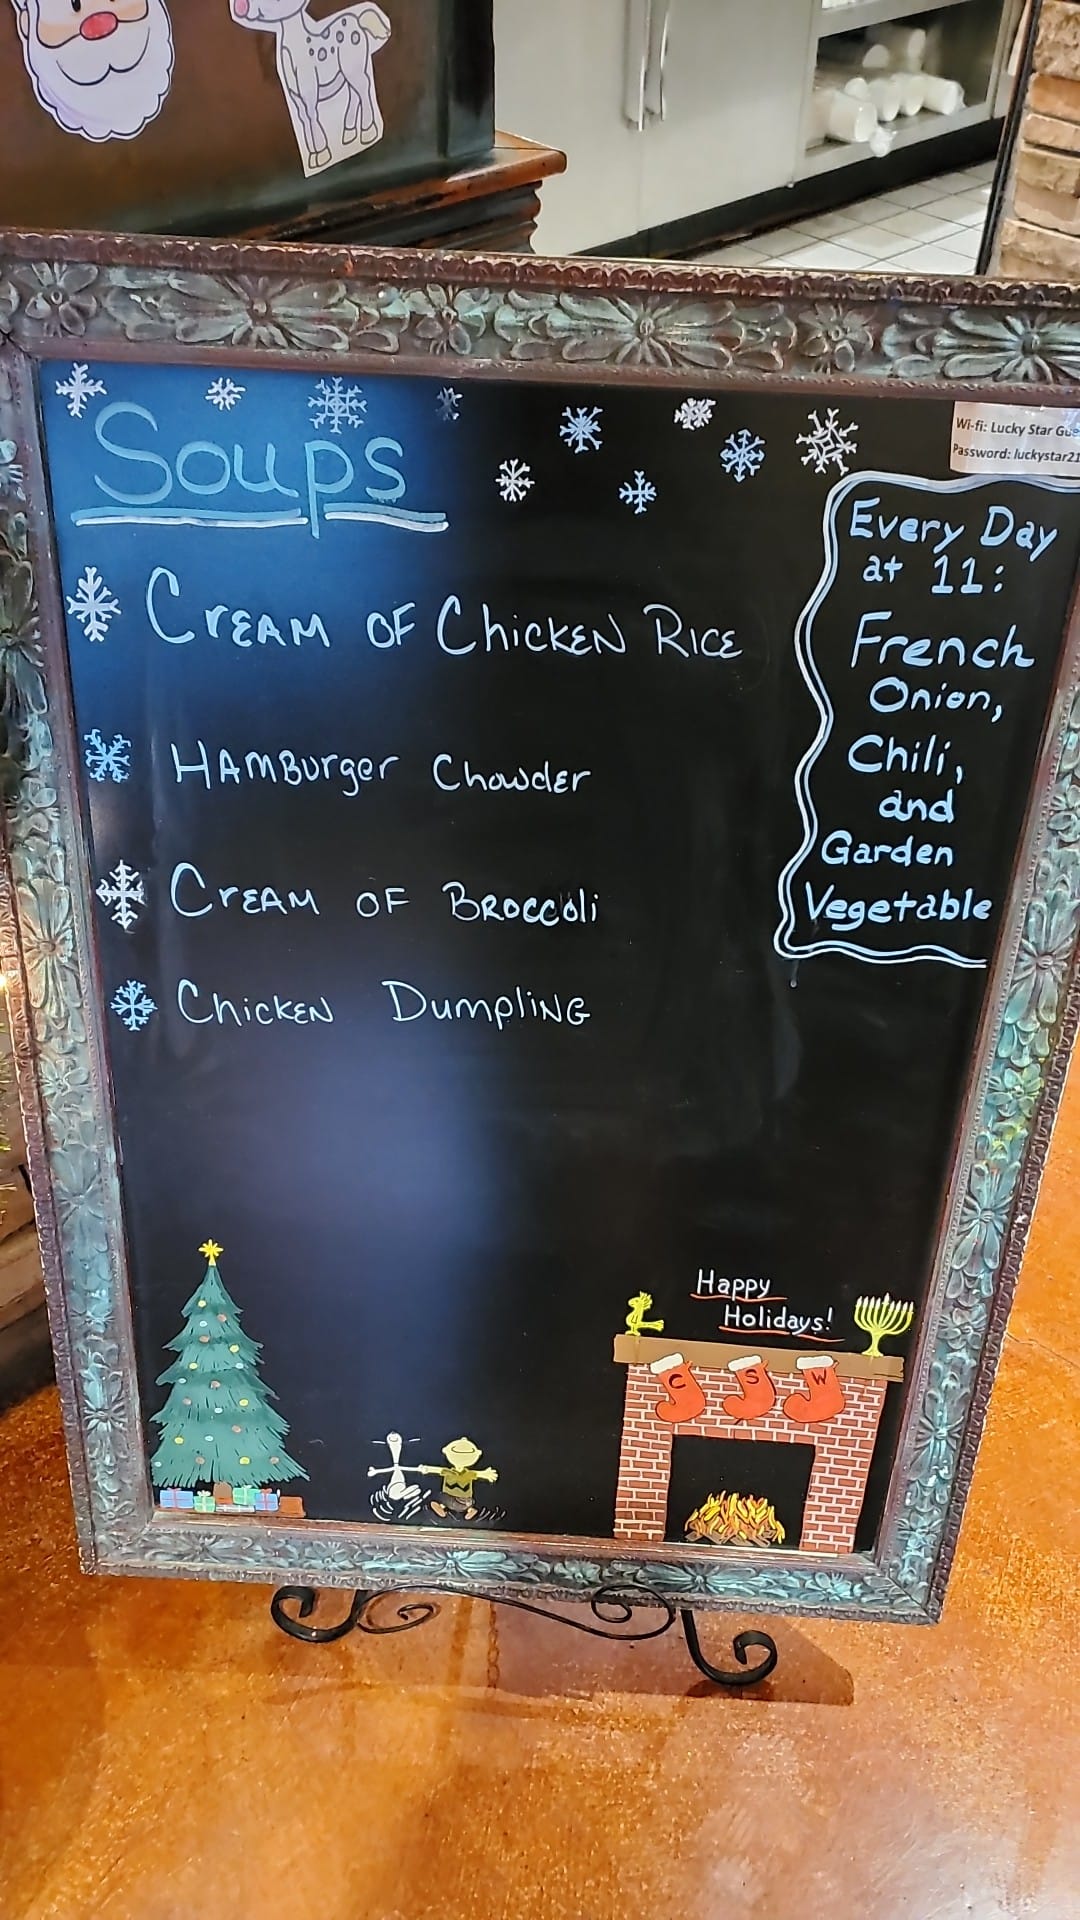 Soups
CREAM OF CHICKEN RICE
HAMBURGER CHOWDER
CREAM OF BROCCOLI
CHICKEN DUMPLING
Wi-fi: Lucky Star
Password: luckystar21
Every Day
at 11:
French
Onion,
Chili,
and
Garden
Vegetable
Happy
Holidays!
C S W